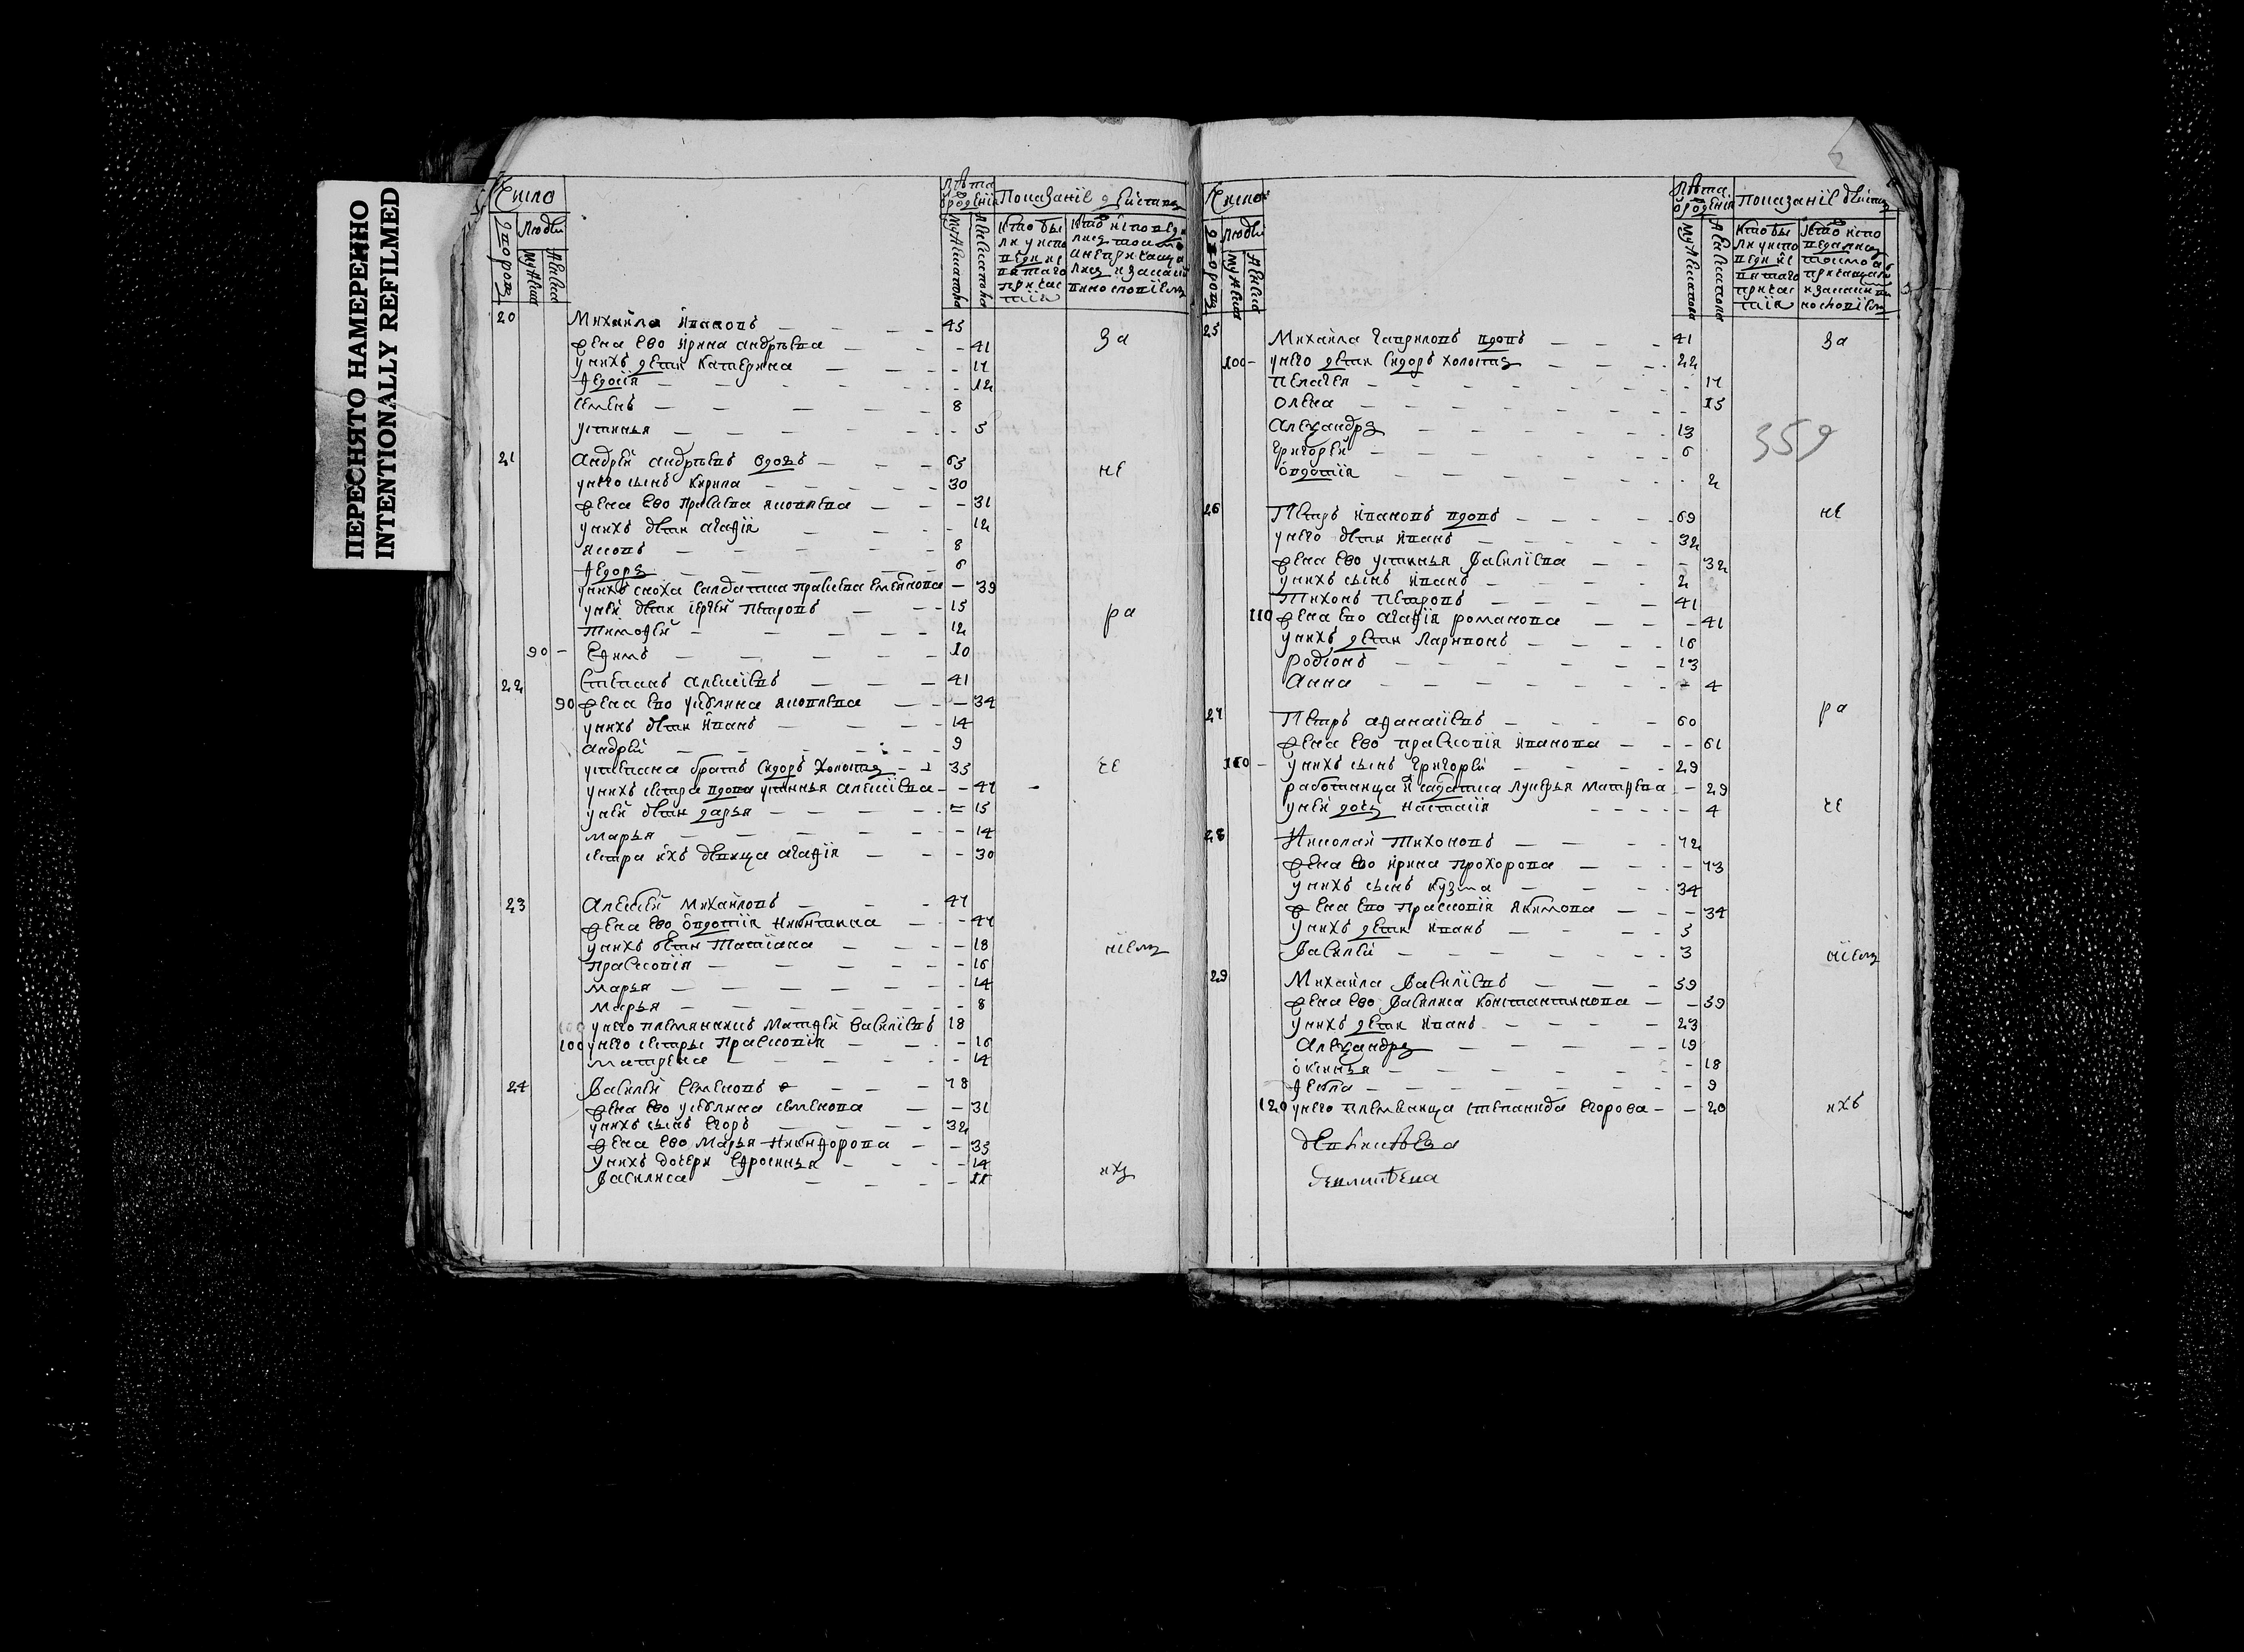 ПЕРЕСНЯТО НАМЕРЕННО
INTENTIONALLY REFILMED
Число
Людей
Показаніе действа
20 Михайла Ивановъ 45
жена ево Ирина андрѣева 41
у нихъ дети Катерина 17
Федосія 12
семенъ 8
устинья 5
21 Андрей андрѣевъ вдовъ 63
у него сынъ Кирила 30
жена ево Прасковья яковлева 31
у нихъ дети агафія 12
яковъ 8
Федоръ 6
у нихъ сноха салдатка прасковья семенова 39
у ней дети сергей Петровъ 15
Тимофей 12
90 Ефимъ 10
22 Степанъ алексеевъ 41
90 жена ево улияна яковлева 34
у нихъ дети Иванъ 14
андрей 9
у степана братъ Сидоръ холостъ 35
у нихъ сестра вдова устинья алексеева 47
у ней дети дарья 15
марья 14
сестра ихъ девица агафія 30
23 Алексей Михайловъ 47
жена ево овдотія Никитина 47
у нихъ дети Татіана 18
прасковія 16
марья 14
марья 8
100 у него племянникъ Матфей василіевъ 18
100 у него сестры Прасковія 16
матрена 14
24 Василей Семеновъ 78
жена ево улияна семенова 31
у нихъ сынъ Егоръ 32
жена ево Марья Никифорова 35
у нихъ дочери Ефросинья 14
Василиса 11
за
не
ра
че
ніемъ
ихъ
Число
Людей
Показаніе действъ
359
25 Михайла гавриловъ вдовъ 41
100 у него дети Сидоръ холостъ 22
Пелагея 17
Олена 15
Александръ 13
Григорей 6
Овдотія 2
26 Петръ Ивановъ вдовъ 69
у него дети Иванъ 32
жена ево устинья Василіева 32
у нихъ сынъ Иванъ 2
Тихонъ Петровъ 41
110 жена ево агафія романова 41
у нихъ дети Ларивонъ 16
родіонъ 13
анна 4
27 Петръ афанасіевъ 60
жена ево прасковія Иванова 61
110 у нихъ сынъ Григорей 29
работница салдатка лукерья матфева 29
у ней дочь настасія 4
28 Николай Тихоновъ 72
жена ево Ирина прохорова 73
у нихъ сынъ кузма 34
жена ево прасковія якимова 34
у нихъ дети Иванъ 5
Василей 3
29 Михайла Василіевъ 59
жена ево Василиса константинова 59
у нихъ дети Иванъ 23
Александръ 19
оксинья 18
фекла 9
120 у него племяница степанида егорова 20
за
не
ра
че
ніемъ
ихъ